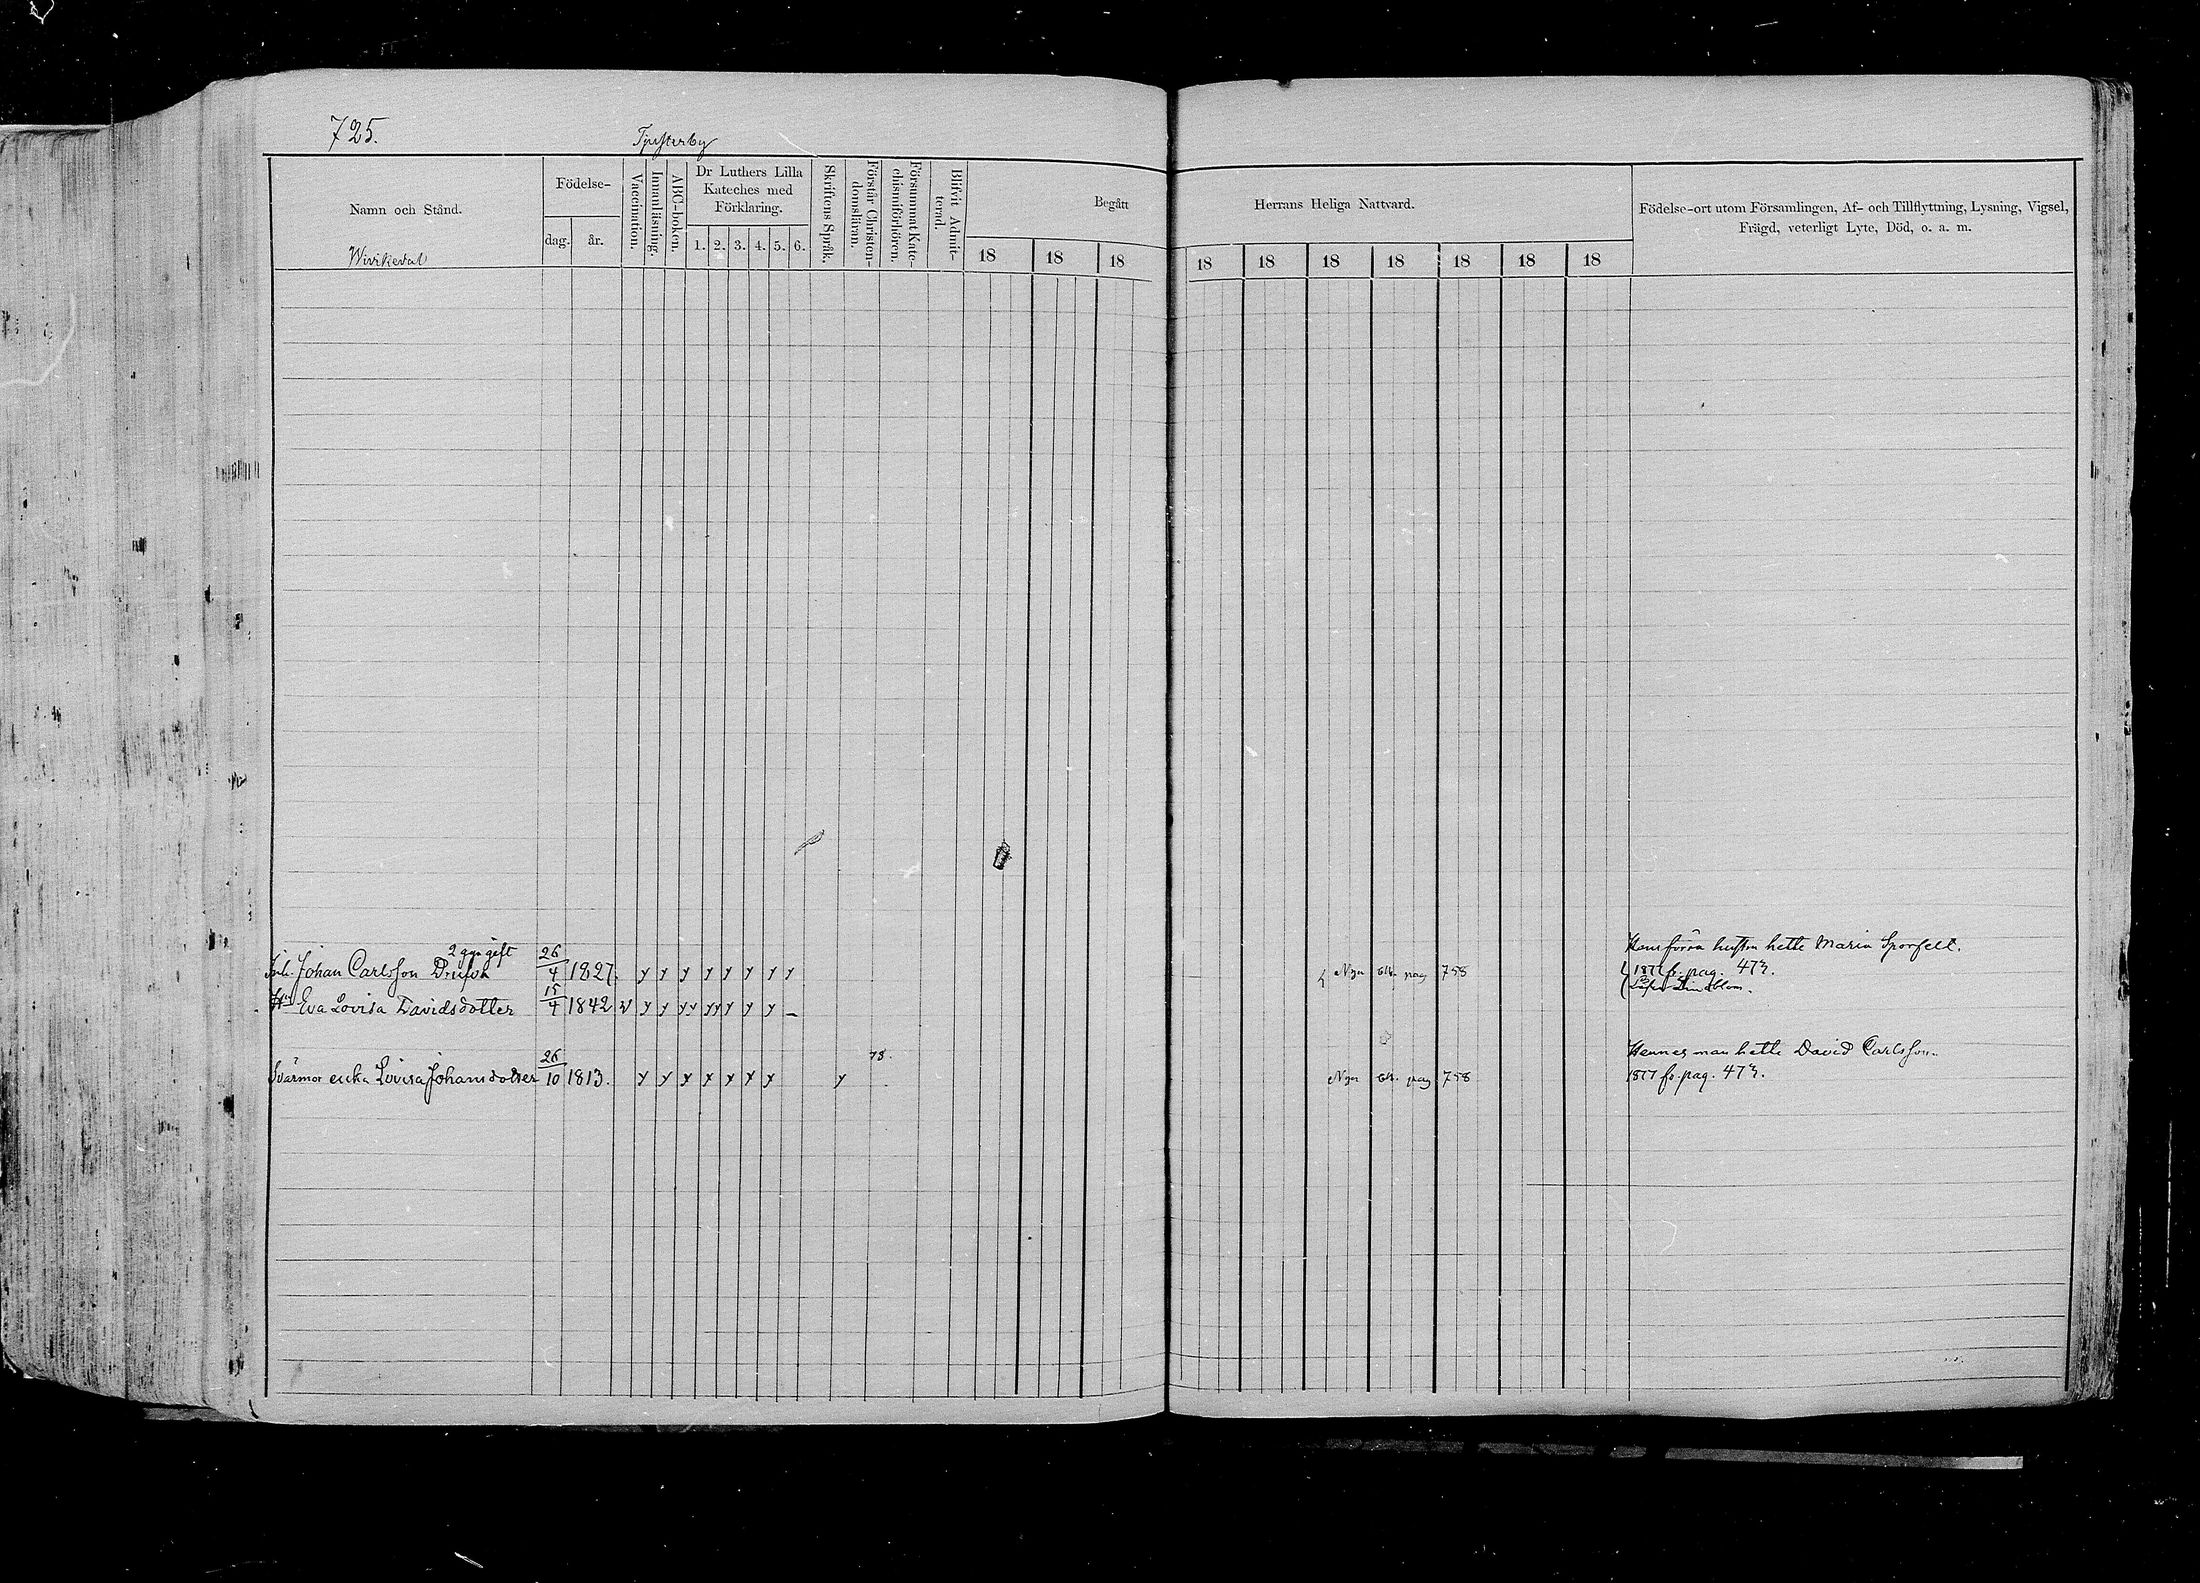 725.
Tjusterby
Namn och Stånd.
Födelse-
dag. år.
Vaccination.
Innanläsning.
ABC-boken.
Dr Luthers Lilla
Kateches med
Förklaring.
1. 2. 3. 4. 5. 6.
Skriftens Språk.
Förstår Christen-
domsläran.
Försummat Kate-
chismiförhören.
Blifvit Admit-
terad.
Begått
18 18 18
Herrans Heliga Nattvard.
18 18 18 18 18 18 18
Födelse-ort utom Församlingen, Af- och Tillflyttning, Lysning, Vigsel,
Frägd, veterligt Lyte, Död, o. a. m.
2 gg gift
Johan Carlsson 26/4 1827. y y y y y y y y
Nya bk. pag 758
Hans förra hustru hette Maria Sporfelt.
1877 fr. pag. 473.
Lindblom.
Hu Eva Lovisa Davidsdotter 15/4 1842 v y y yy yy y y y –
78.
Svärmor enka Lovisa Johansdotter 26/10 1813. y y y y y y y y
Nya bk. pag 758
Hennes man hette David Carlsson.
1877 fr. pag. 473.